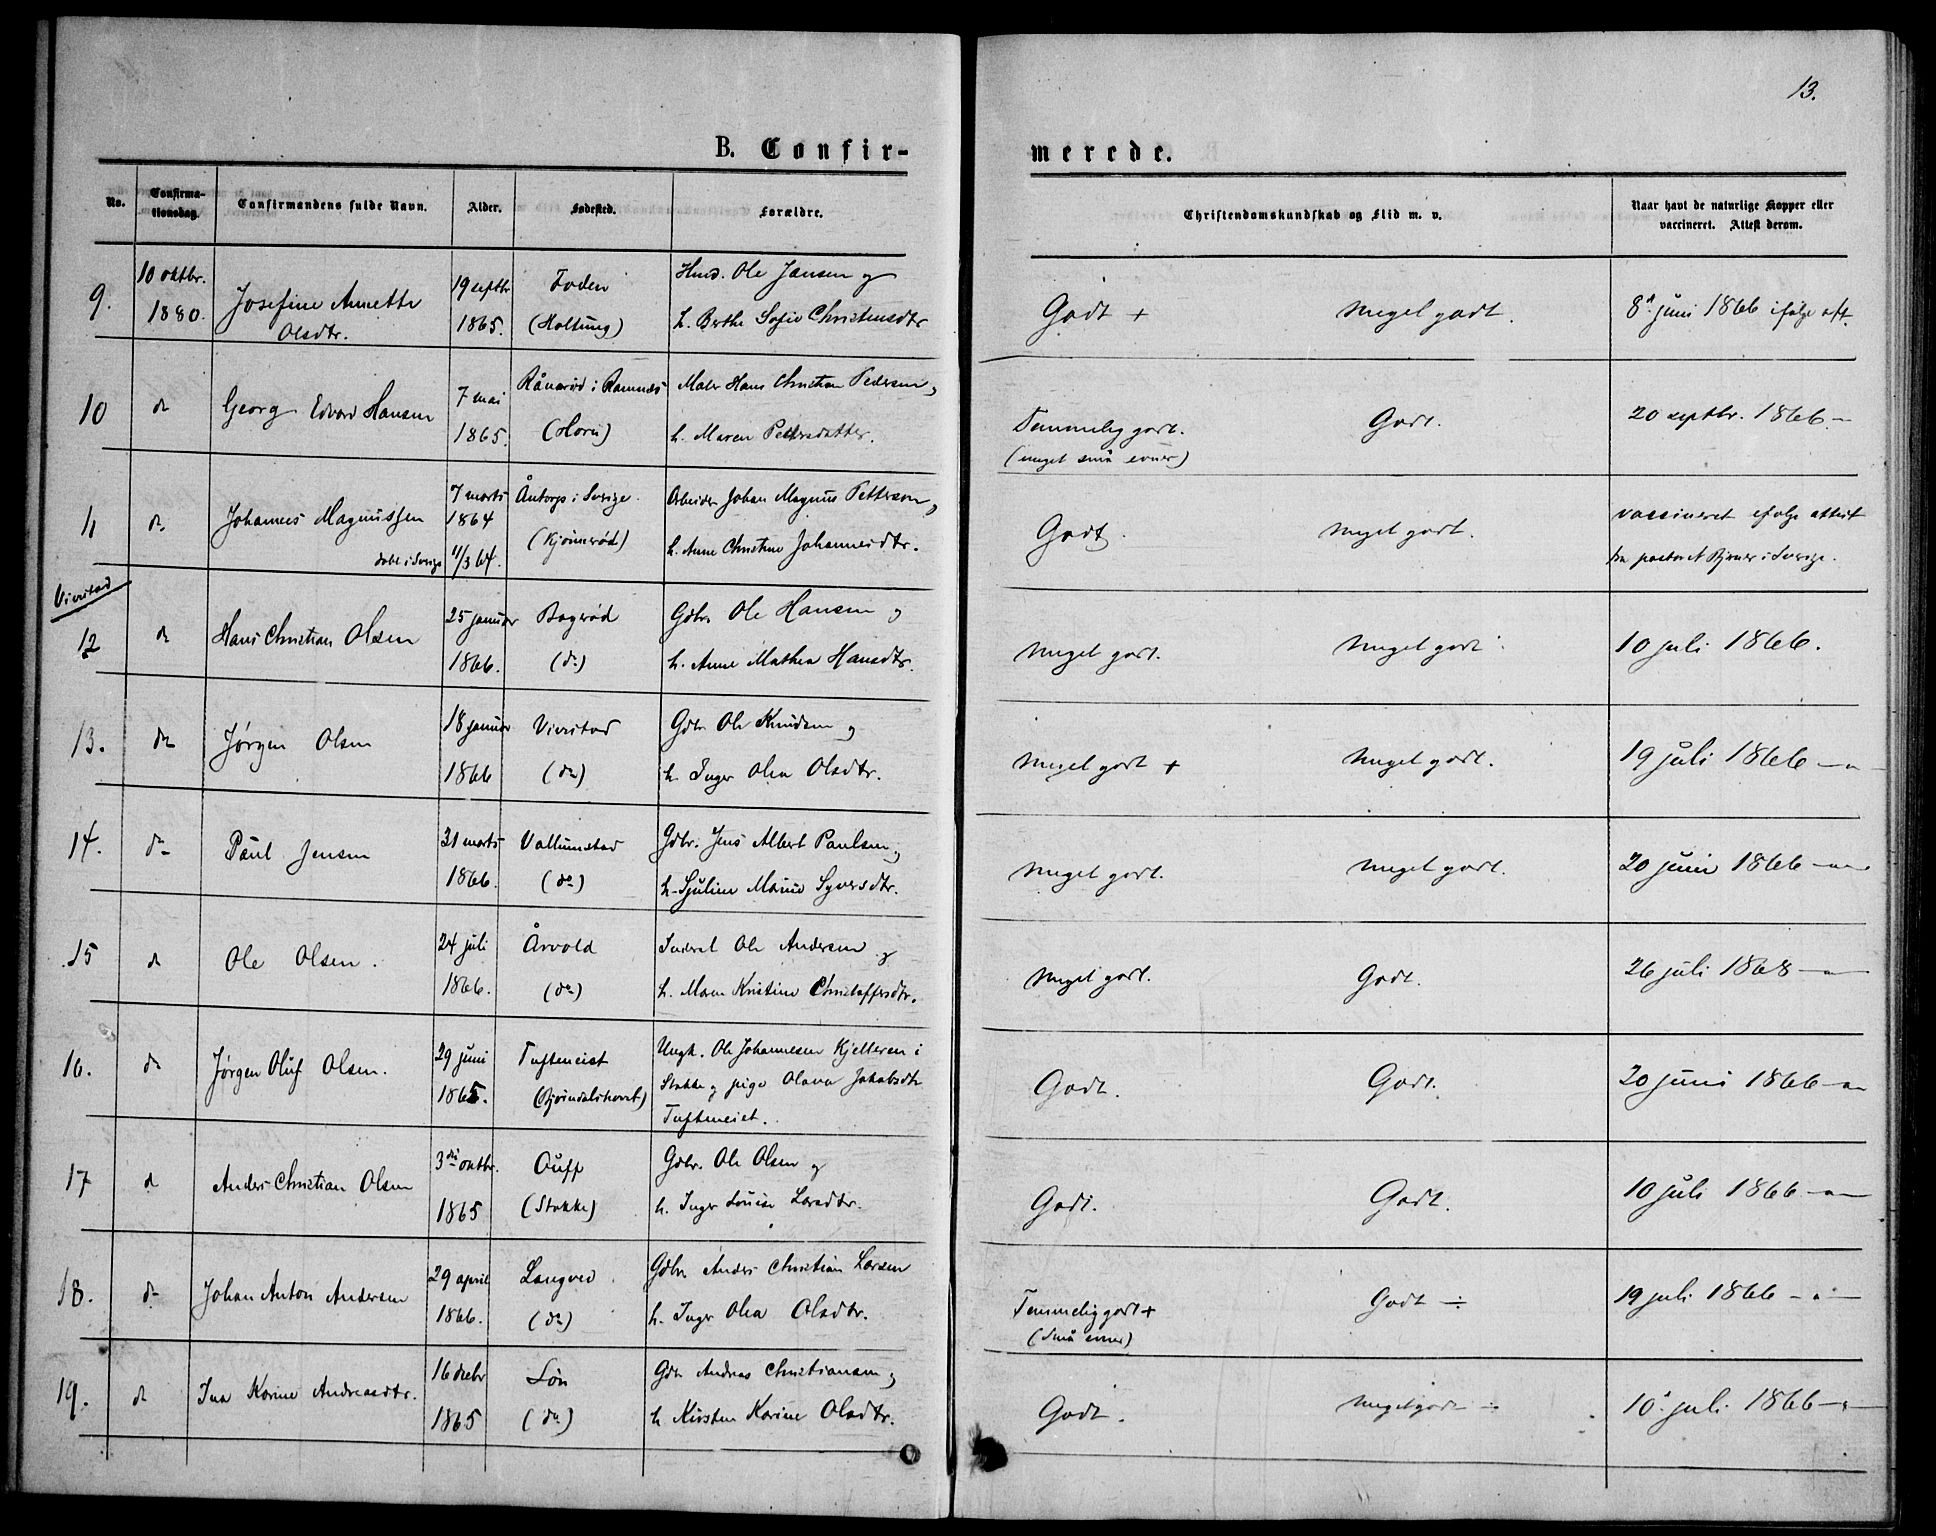 13.
B. Confir-
merede.
No.
Confirma-
tionsdag.
Confirmandens fulde Navn.
Alder.
Fødested.
Forældre.
Christendomskundskab og Flid m. v.
Naar havt de naturlige Kopper eller
vaccineret. Attest derom.
9.
10 oktbr.
1880.
Josefine Annette
Olsdtr.
19 septbr
1865.
Foden
(Haltung)
Husd. Ole Jansen og
h. Berthe Sofie Christensdtr
Godt +
Meget godt.
8de juni 1866 ifølge att.
10
do
Georg Edvard Hansen
7 mai
1865.
Rånerød i Ramnes
(Horn)
Maler Hans Christian Pedersen og
h. Maren Pettersdatter.
Temmelig godt.
(meget små evner)
Godt.
20 septbr. 1866 —
11
do
Johannes Magnussen
døbt i Sverige
7 marts
1864
11/3 64.
i Sverige
(Kjønnerød)
Arbeider Johan Magnus Petterson og
h. Anne Christine Johannesdtr.
Godt.
Meget godt.
vaccineret ifølge attest
fra pastor i Sverige.
Vivestad
12
do
Hans Christian Olsen
25 januar
1866.
Bagrød
(do)
Gdbr. Ole Hansen og
h. Anne Mathea Hansdtr.
Meget godt.
Meget godt
10 juli 1866.
13.
do
Jørgen Olsen
18 januar
1866
Vivestad
(do)
Gdbr. Ole Knudsen og
h. Inger Olea Olsdtr.
Meget godt +
Meget godt.
19 juli 1866 —"—
14.
do
Paul Jensen
31 marts
1866.
Vallumstad
(do)
Gdbr. Jens Albert Paulsen og
h. Sjuline Marie Syversdtr.
Meget godt.
Meget godt.
20 juni 1866 —"—
15
do
Ole Olsen.
24 juli
1866.
Årvold
(do)
Inderst Ole Andersen og
h. Maren Kristine Christoffersdtr.
Meget godt.
Godt.
26 juli 1868 —"—
16.
do
Jørgen Oluf Olsen.
29 juni
1865.
Tufteneiet
Ungk. Ole Johannesen Kjelleren i
Stokke og pige Olava Jakobsdtr
Tufteneiet.
Godt.
Godt.
20 juni 1866 —"—
17
do
Anders Christian Olsen
3die oktbr.
1865
Auff
(Stokke)
Gdbr. Ole Olsen og
h. Inger Louise Larsdtr.
Godt.
Godt.
10 juli 1866 —"—
18.
do
Johan Anton Andersen
29 april
1866.
Langved
(do)
Gdbr. Anders Christian Larsen
h. Inger Olea Olsdtr.
Temmelig godt +
(små evner)
Godt ÷
19 juli 1866 —"—
19.
do
Ina Karine Andreasdtr.
16 decbr
1865
Løn
(do)
Gdbr Andreas Christiansen og
h Kirsten Karine Olsdtr.
Godt.
Meget godt ÷
10de juli 1866 —"—